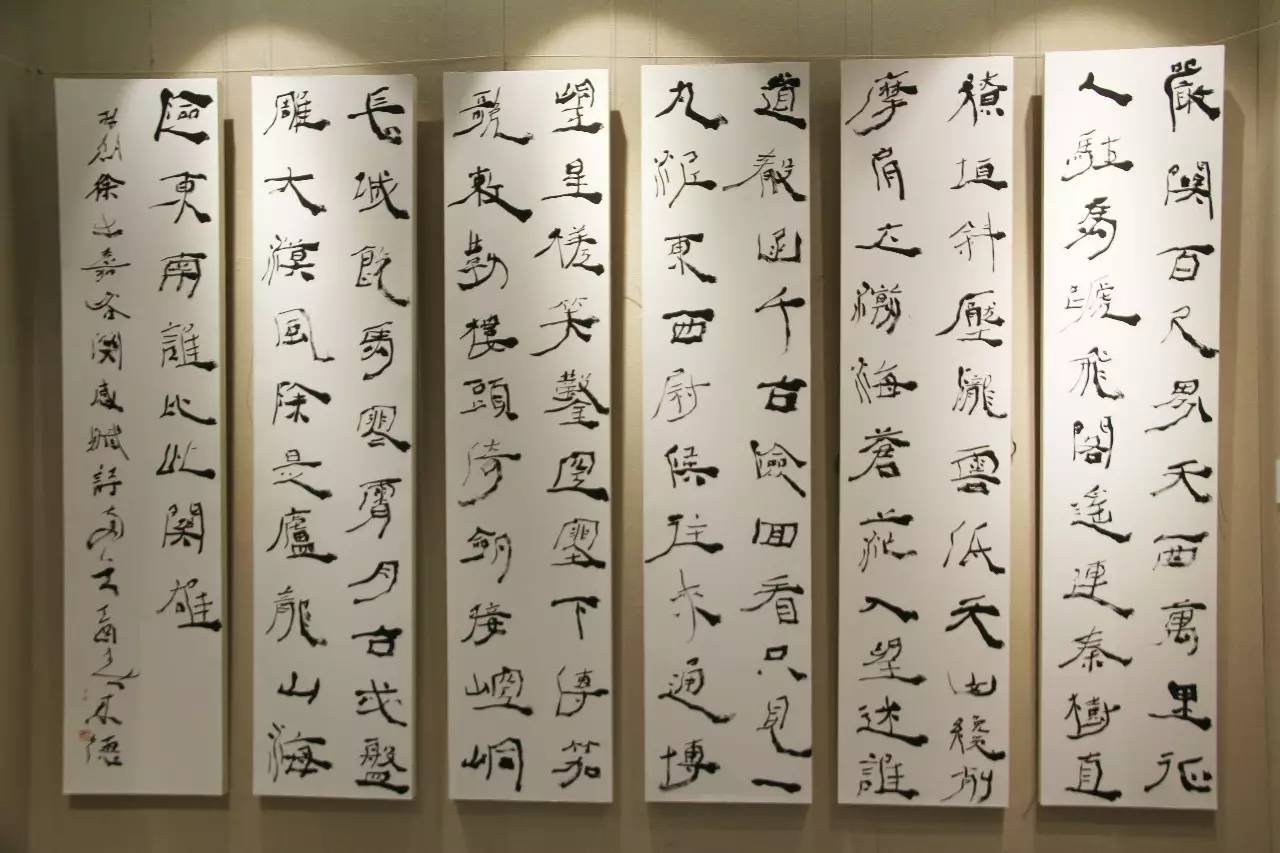 嚴關百尺界天西萬里征
人駐馬蹏飛閣遙連秦樹直
繚垣斜壓隴雲低天山巉削
摩肩立瀚海蒼茫入望迷誰
道殽函千古險回看只見一
丸泥東西尉候往來通博
望星槎笑鑿空塞下傳笳
歌敕勒樓頭倚劍接崆峒
長城飲馬寒宵月古戍盤
雕大漠風除是盧龍山海
險東南誰比此關雄
林則徐出嘉峪關感賦詩